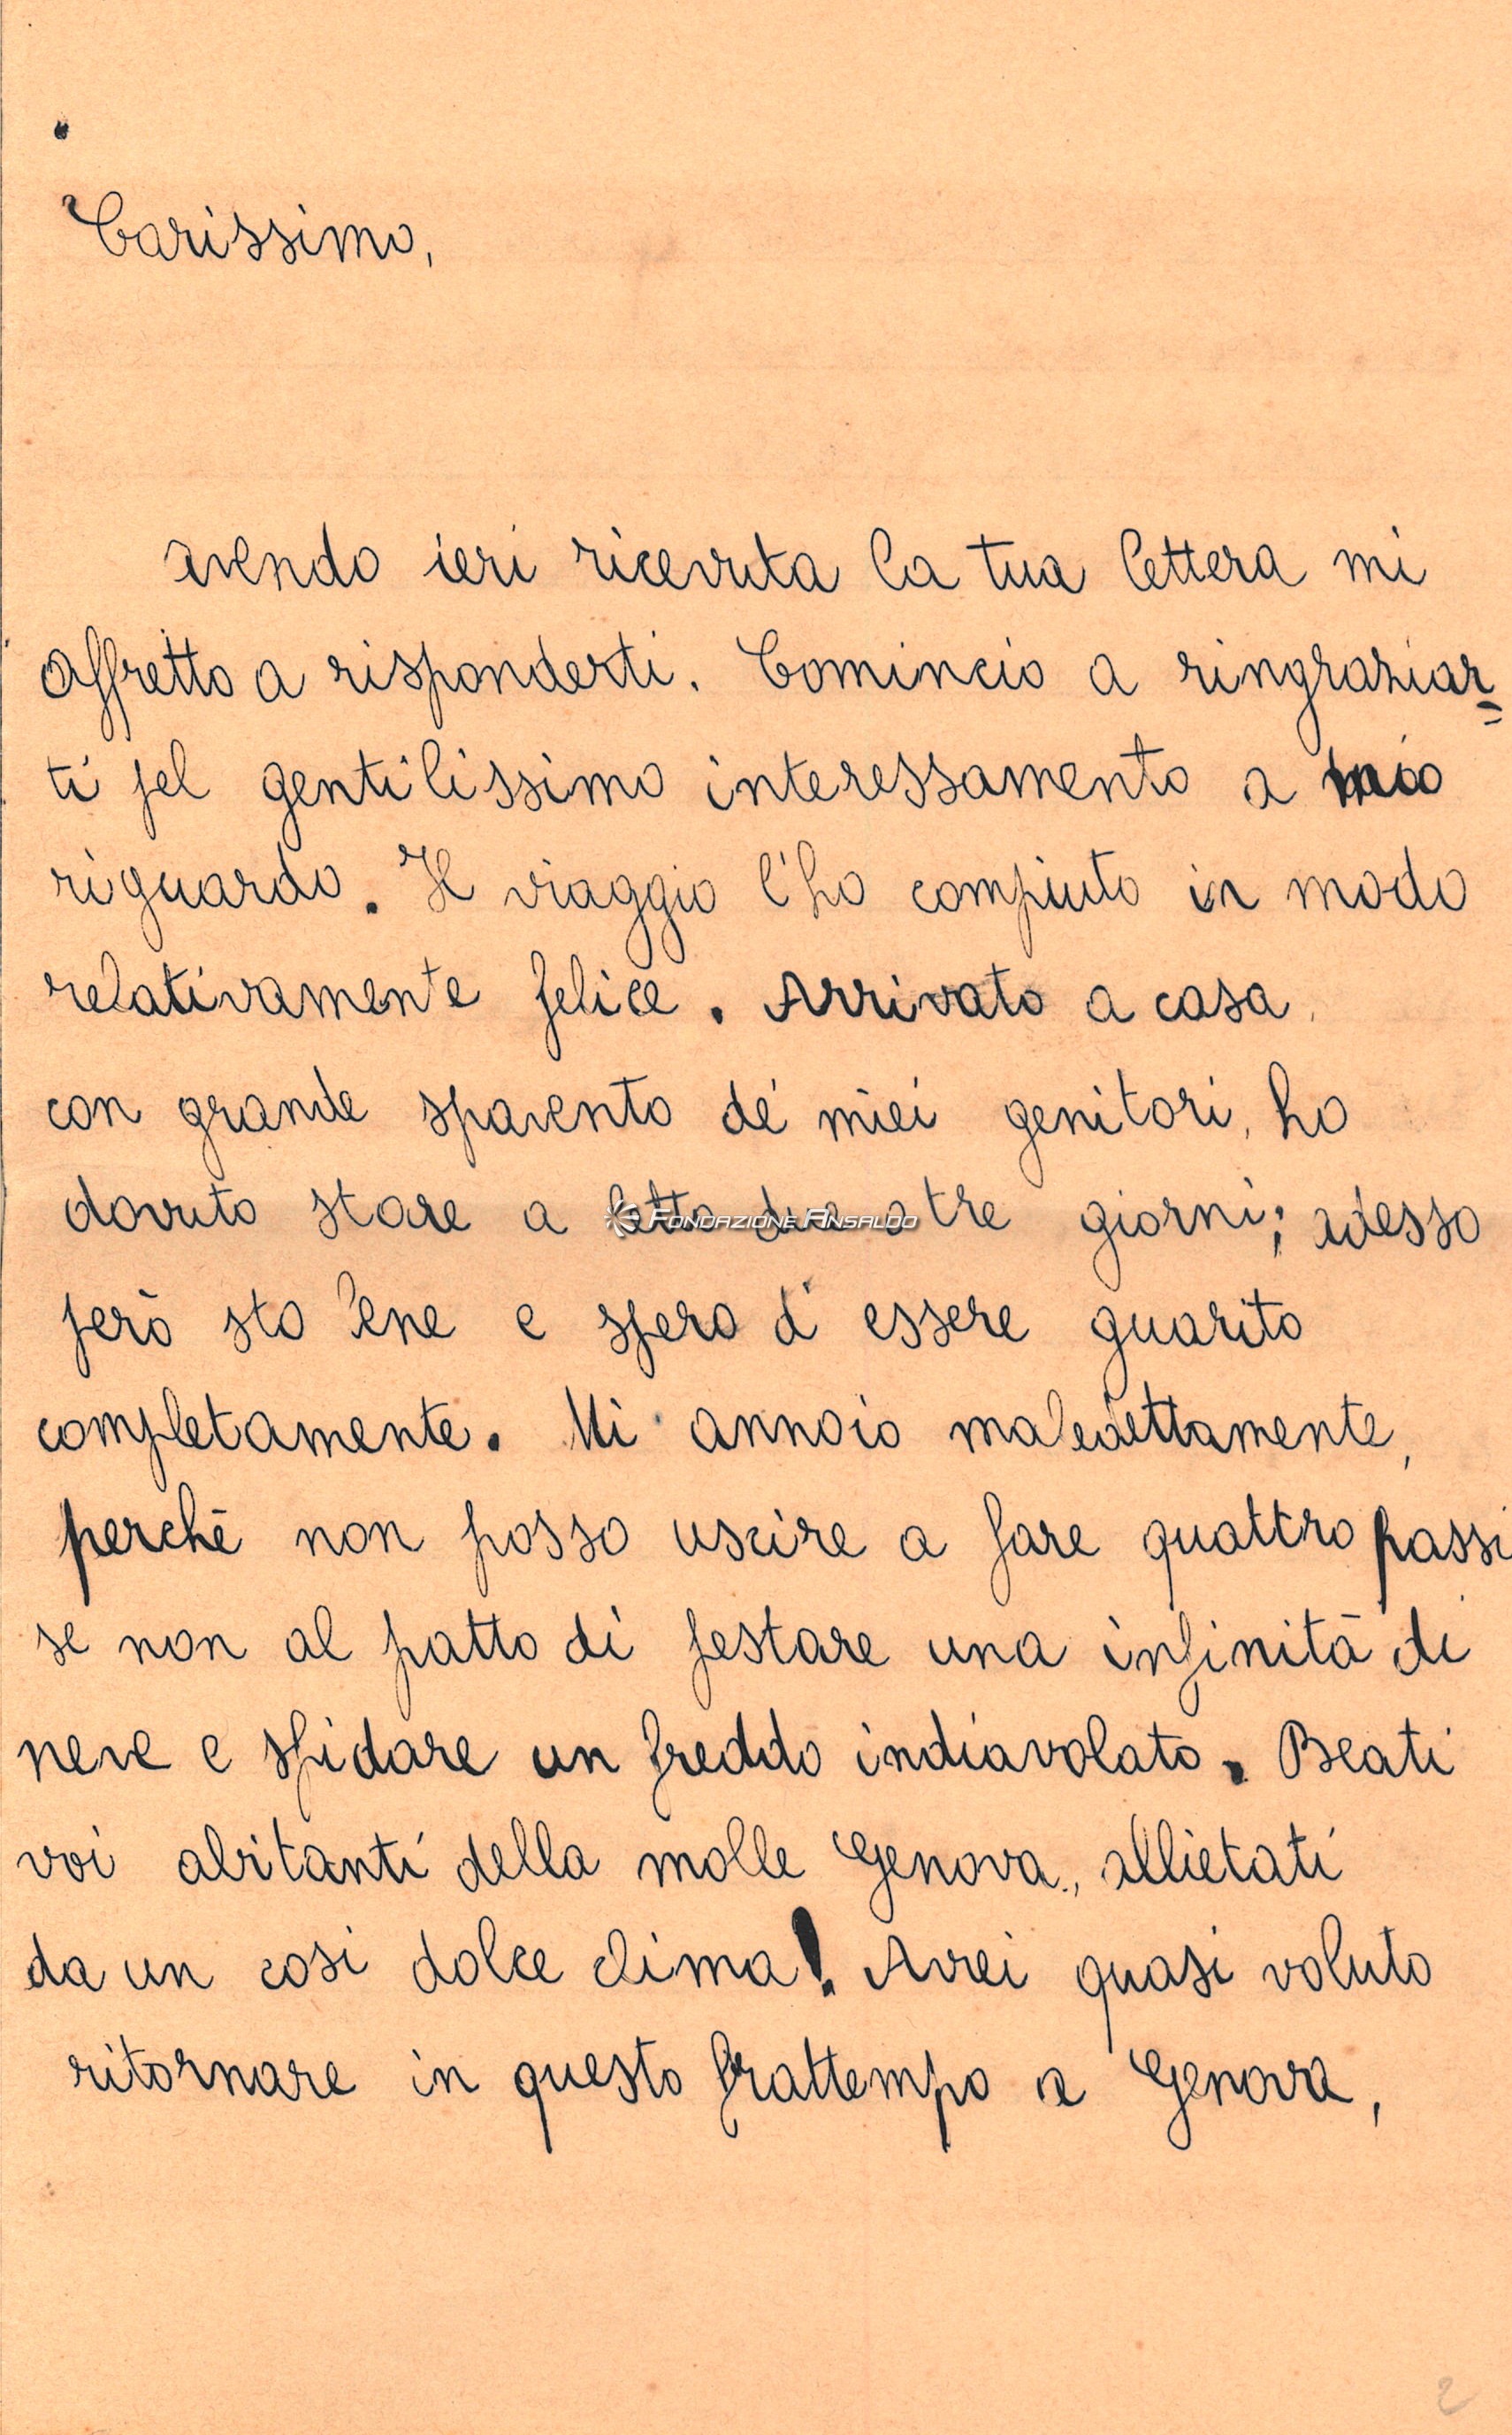 Carissimo,
avendo ieri ricevuta la tua lettera mi
affretto a risponderti. Comincio a ringraziar=
ti pel gentilissimo interessamento a mio
riguardo. Il viaggio l'ho compiuto in modo
relativamente felice. Arrivato a casa,
con grande spavento de' miei genitori, ho
dovuto stare a letto due o tre giorni; adesso
FONDAZIONE ANSALDO
però sto bene e spero d'essere guarito
completamente. Mi annoio maledettamente,
perchè non posso uscire a fare quattro passi
se non al patto di pestare una infinità di
neve e sfidare un freddo indiavolato. Beati
voi abitanti della molle Genova, allietati
da un così dolce clima! Avrei quasi voluto
ritornare in questo frattempo a Genova,
2